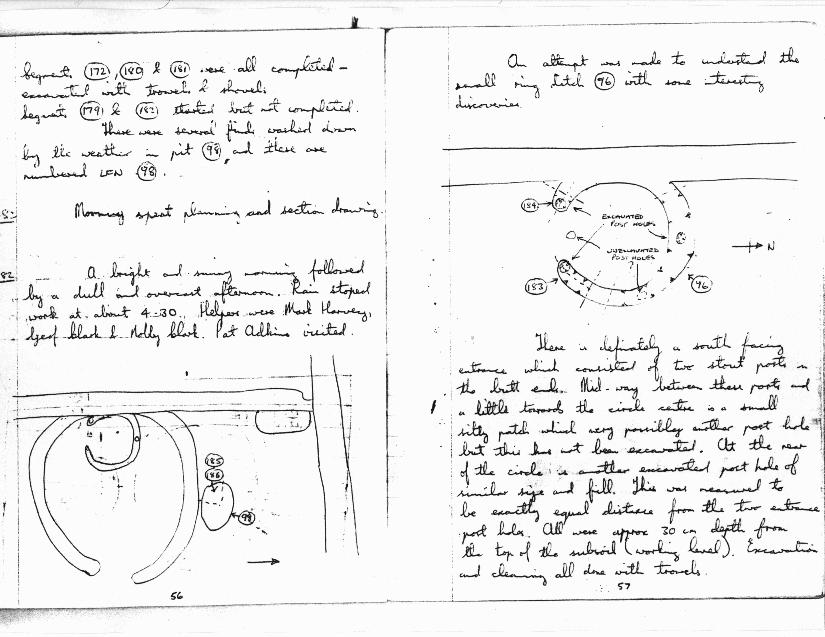 Segments (172), (180) & (181) were all completed -
excavated with trowels & shovels
Segments (179) & (182) started but not completed.
There were several finds washed down
by the weather in pit (98), and these are
numbered LFN (98).
Morning spent planning and section drawing.
82
A bright and sunny morning followed
by a dull and overcast afternoon. Rain stoped
work at about 4-30. Helpers were Mark Harvey,
Geof Clark & Molly Clark. Pat Adkins visited.
185
186
98
56
An attempt was made to understand the
small ring ditch (96) with some interesting
discoveries.
184
EXCAVATED
POST HOLES
UNEXCAVATED
POST HOLES
?
N
183
96
There is definately a south facing
entrance which consisted of two stout posts in
the ditch ends. Mid-way between these posts and
a little towards the circle centre is a small
silty patch which very possibly another post hole
but this has not been excavated. At the rear
of the circle is another excavated post hole of
similar size and fill. This was measured to
be exactly equal distance from the two entrance
post holes. All were approx 30 cm depth from
the top of the subsoil (working level). Excavation
and cleaning all done with trowels.
57